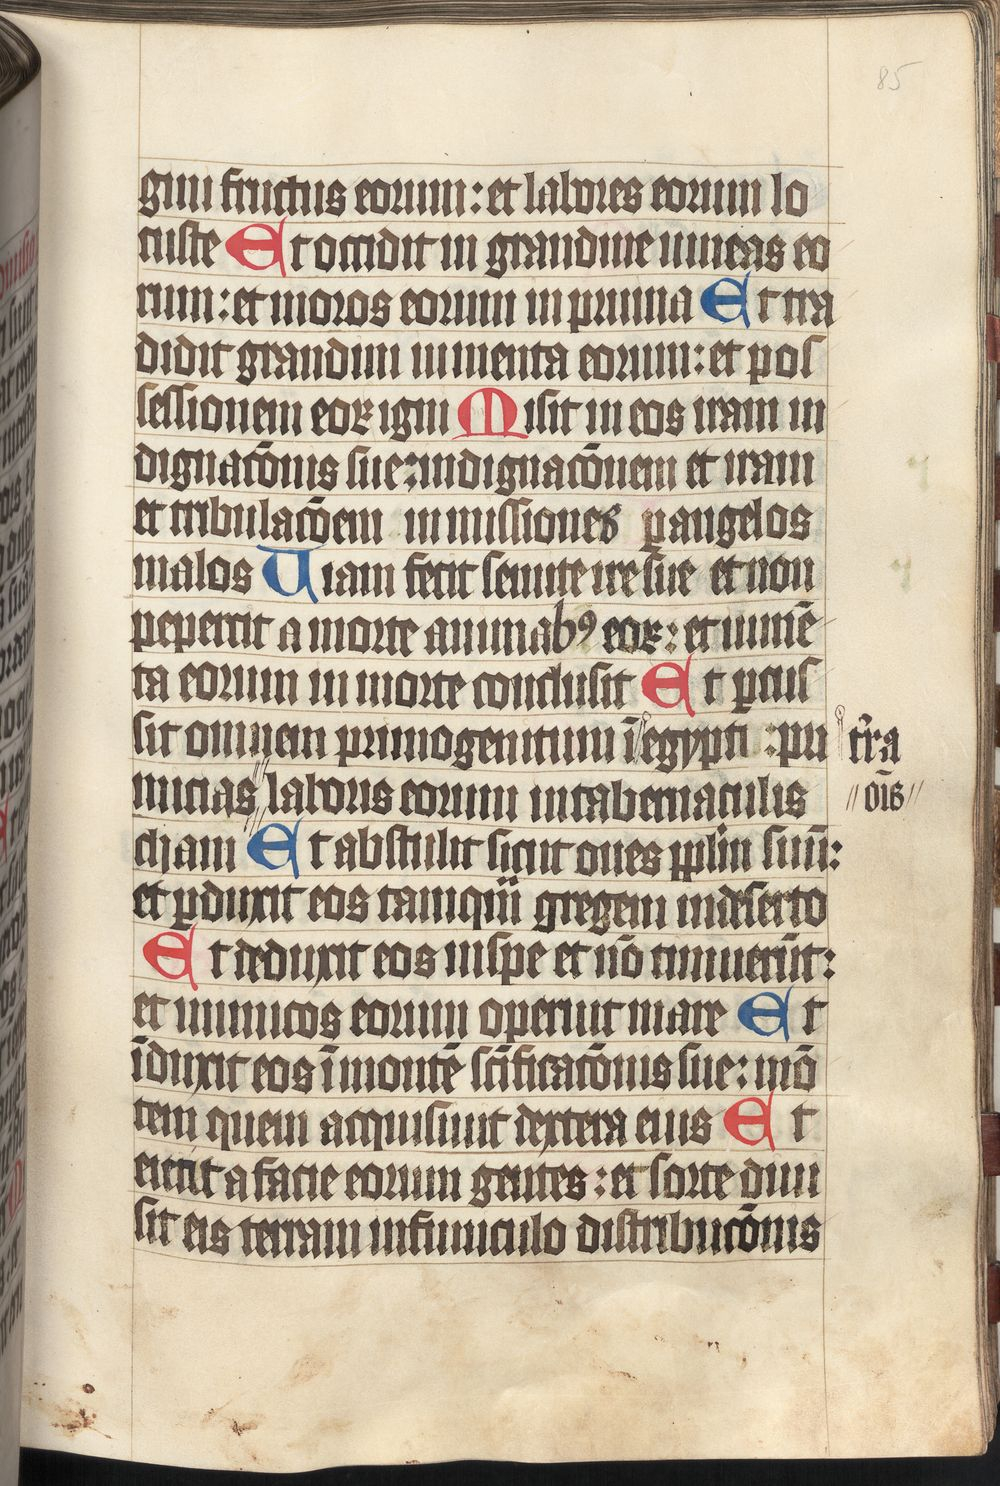 85
gini fructus eorum: et labores eorum lo
custe Et occidit in grandine vineas eo
rum: et moros eorum in pruina Et tra
didit grandini iumenta eorum: et pos
sessionem eoꝝ igni Misit in eos iram in
dignacōnis sue: indignacōnem et iram
et tribulacōem inmissiones ꝑ angelos
malos Viam fecit semite ire sue et non
pepercit a morte animabꝰ eoꝝ: et iumē
ta eorum in morte conclusit Et ꝑcus
sit omnem primogenitum ī egypti : pri
micias laboris eorum in tabernaculis
cham Et abstulit sicut oues ppl̄m suū:
et ꝑduxit eos tamquā gregem in deserto
Et deduxit eos in spe et nō timuerūt:
et inimicos eorum operuit mare Et
īduxit eos ī montē sc̄ificacōnis sue: mō
tem quem acquisiuit dextera eius Et
eiecit a facie eorum gentes: et sorte diui
sit eis terram in funiculo distribucōnis
tr̄ra
// oīs //